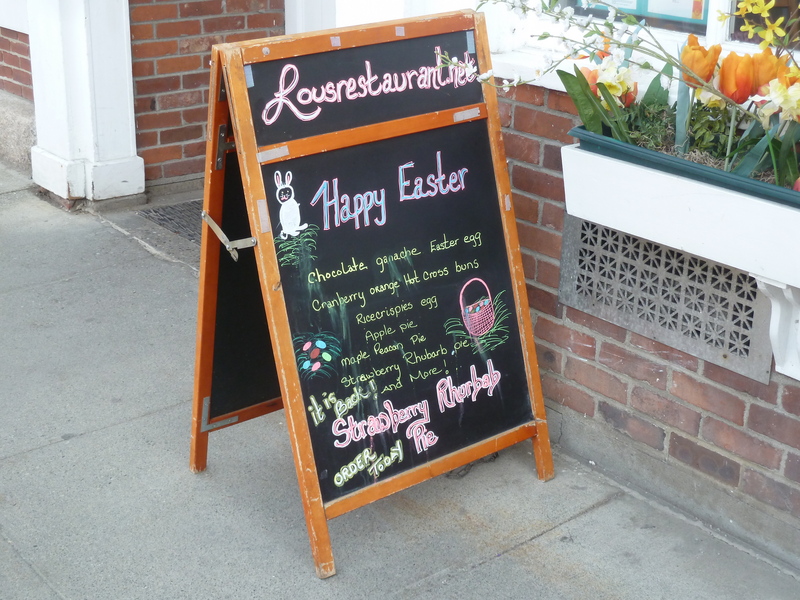 Lousrestaurant.net
Happy Easter
Chocolate ganache Easter egg
Cranberry orange Hot Cross buns
Ricecrispies egg
Apple pie
Maple Peacan Pie
Strawberry Rhubarb pie
and More!
it is
Back!
Strawberry Rhurbab
Pie
ORDER
TODAY